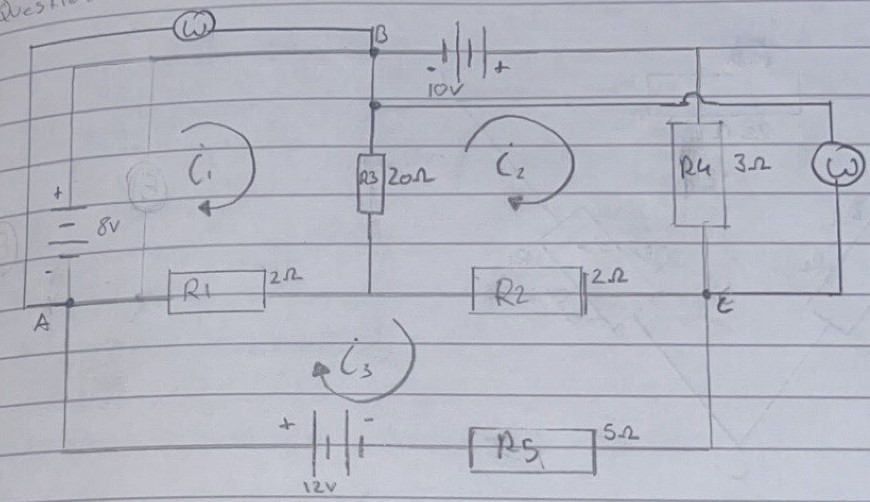 Question
W
B
- +
10V
i1
R3 20Ω
i2
R4 3Ω
W
+
8V
-
R1 2Ω
R2 2Ω
A
C
i3
+ -
12V
R5 5Ω